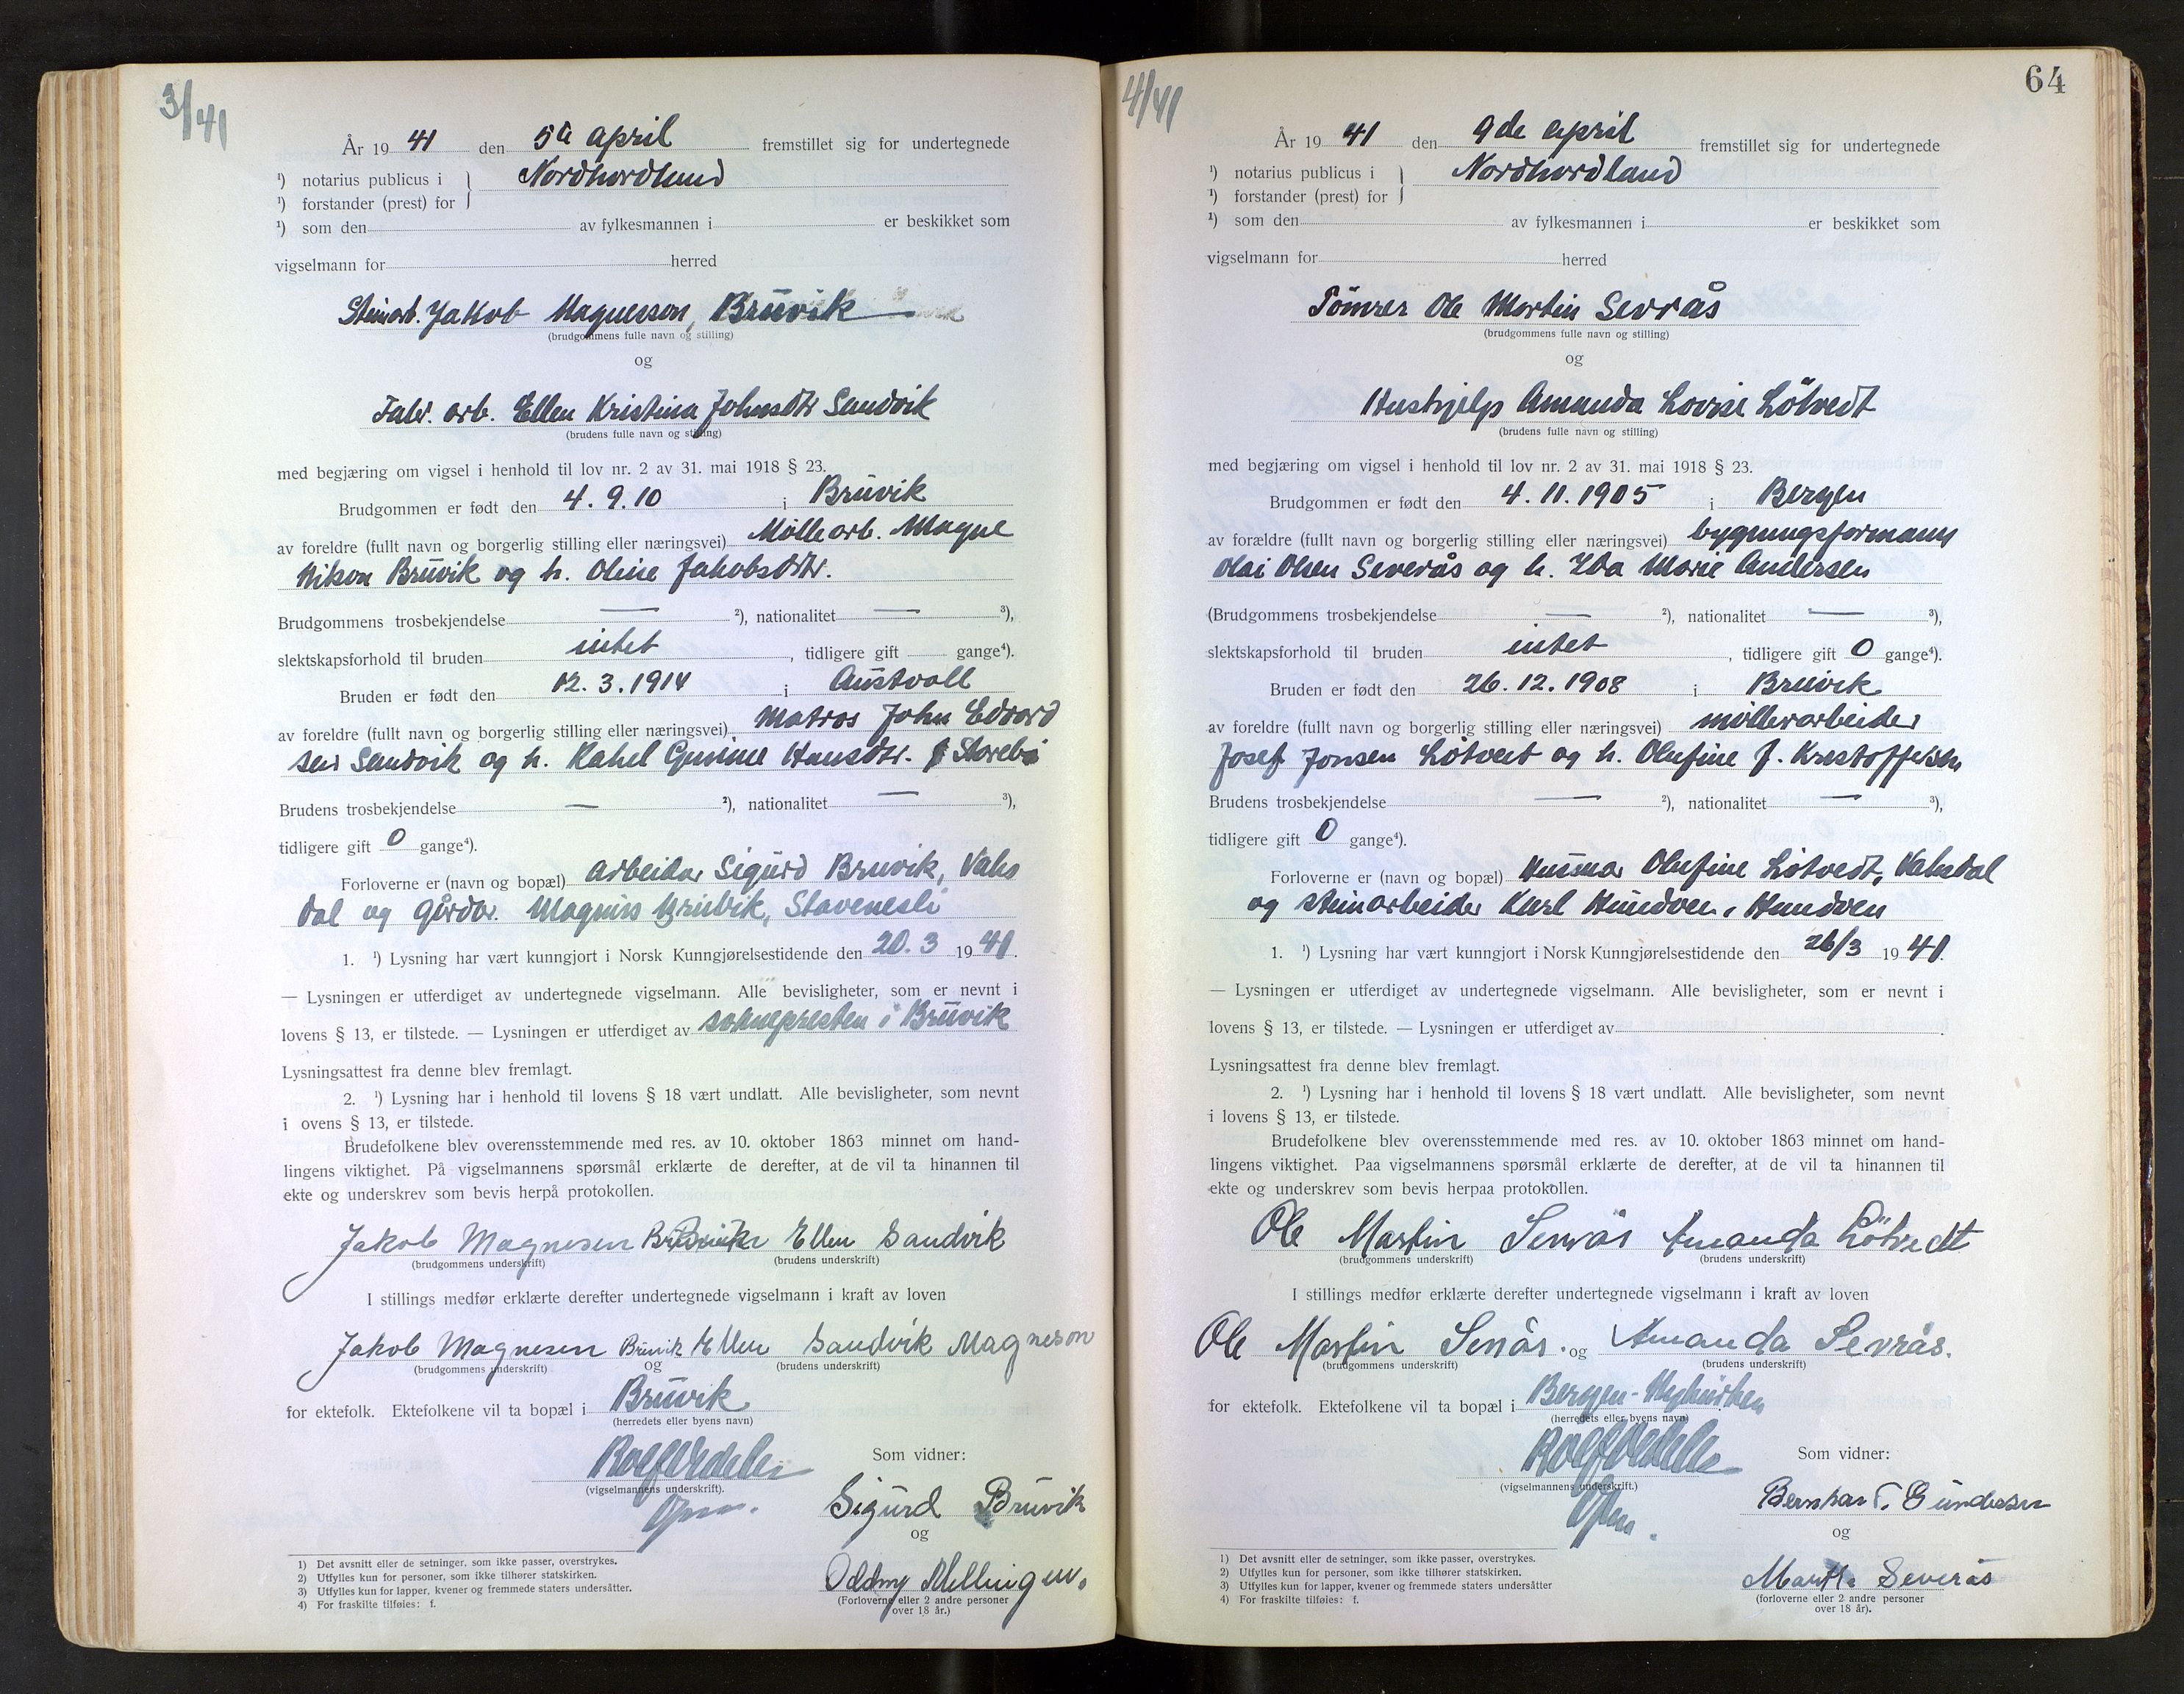 3/41
År 19 41 den 5te april fremstillet sig for undertegnede
¹) notarius publicus i } Nordhordland
¹) forstander (prest) for
¹) som den av fylkesmannen i er beskikket som
vigselmann for herred
Steinarb. Jakob Magnesson, Bruvik
(brudgommens fulle navn og stilling)
og
Fabr. arb. Ellen Kristina Johnsdtr Sandvik
(brudens fulle navn og stilling)
med begjæring om vigsel i henhold til lov nr. 2 av 31. mai 1918 § 23.
Brudgommen er født den 4. 9. 10 i Bruvik
av foreldre (fullt navn og borgerlig stilling eller næringsvei) Møllearb. Magne
Nilson Bruvik og h. Oline Jakobsdtr.
Brudgommens trosbekjendelse — ²), nationalitet — ³),
slektskapsforhold til bruden intet, tidligere gift gange⁴).
Bruden er født den 12. 3. 1914 i Austvoll
av foreldre (fullt navn og borgerlig stilling eller næringsvei) Matros John Edvard
sen Sandvik og h. Rahel Gurine Hansdtr. Storebø
Brudens trosbekjendelse — ²), nationalitet — ³),
tidligere gift 0 gange⁴).
Forloverne er (navn og bopæl) Arbeider Sigurd Bruvik, Vaks
dal og gårdbr. Magnus Bruvik, Stavenesli
1. ¹) Lysning har vært kunngjort i Norsk Kunngjørelsestidende den 20. 3 19 41.
— Lysningen er utferdiget av undertegnede vigselmann. Alle bevisligheter, som er nevnt i
lovens § 13, er tilstede. — Lysningen er utferdiget av soknepresten i Bruvik
Lysningsattest fra denne blev fremlagt.
2. ¹) Lysning har i henhold til lovens § 18 vært undlatt. Alle bevisligheter, som nevnt
i ovens § 13, er tilstede.
Brudefolkene blev overensstemmende med res. av 10. oktober 1863 minnet om hand-
lingens viktighet. På vigselmannens spørsmål erklærte de derefter, at de vil ta hinannen til
ekte og underskrev som bevis herpå protokollen.
Jakob Magnesen Bruvik Ellen Sandvik
(brudgommens underskrift) (brudens underskrift)
I stillings medfør erklærte derefter undertegnede vigselmann i kraft av loven
Jakob Magnesen Bruvik Ellen Sandvik Magneson
(brudgommens underskrift) og (brudens underskrift)
for ektefolk. Ektefolkene vil ta bopæl i Bruvik
(herredets eller byens navn)
Som vidner:
(vigselmannens underskrift).
Sigurd Bruvik
og
Oddny Mellingen.
(Forloverne eller 2 andre personer
over 18 år.)
1) Det avsnitt eller de setninger, som ikke passer, overstrykes.
2) Utfylles kun for personer, som ikke tilhører statskirken.
3) Utfylles kun for lapper, kvener og fremmede staters undersåtter.
4) For fraskilte tilføies: f.
4/41
64
År 19 41 den 9de april fremstillet sig for undertegnede
¹) notarius publicus i } Nordhordland
¹) forstander (prest) for
¹) som den av fylkesmannen i er beskikket som
vigselmann for herred
Tömrer Ole Martin Sevrås
(brudgommens fulle navn og stilling)
og
Hushjelp Amanda Lovise Lötvedt
(brudens fulle navn og stilling)
med begjæring om vigsel i henhold til lov nr. 2 av 31. mai 1918 § 23.
Brudgommen er født den 4. 11. 1905 i Bergen
av forældre (fullt navn og borgerlig stilling eller næringsvei) bygningsformann
Olai Olsen Severås og h. Ida Marie Andersen
(Brudgommens trosbekjendelse — ²), nationalitet — ³),
slektskapsforhold til bruden intet, tidligere gift 0 gange⁴).
Bruden er født den 26. 12. 1908 i Bruvik
av foreldre (fullt navn og borgerlig stilling eller næringsvei) möllerarbeider
Josef Jonsen Lötvedt og h. Olufine J. Kristoffersen
Brudens trosbekjendelse — ²), nationalitet — ³),
tidligere gift 0 gange⁴).
Forloverne er (navn og bopæl) Husmor Olufine Lötvedt, Vaksdal
og steinarbeider Karl Hundven, Hundven
1. ¹) Lysning har vært kunngjort i Norsk Kunngjørelsestidende den 26/3 19 41.
— Lysningen er utferdiget av undertegnede vigselmann. Alle bevisligheter, som er nevnt i
lovens § 13, er tilstede. — Lysningen er utferdiget av
Lysningsattest fra denne blev fremlagt.
2. ¹) Lysning har i henhold til lovens § 18 vært undlatt. Alle bevisligheter, som nevnt
i lovens § 13, er tilstede.
Brudefolkene blev overensstemmende med res. av 10. oktober 1863 minnet om hand-
lingens viktighet. Paa vigselmannens spørsmål erklærte de derefter, at de vil ta hinannen til
ekte og underskrev som bevis herpaa protokollen.
Ole Martin Sevrås Amanda Lötvedt
(brudgommens underskrift) (brudens underskrift)
I stillings medfør erklærte derefter undertegnede vigselmann i kraft av loven
Ole Martin Sevrås. og Amanda Sevrås.
(brudgommens underskrift) (brudens underskrift)
for ektefolk. Ektefolkene vil ta bopæl i Bergen-
(herredets eller byens navn)
Som vidner:
(vigselmannens underskrift.)
Bernhard T. Gundersen
og
Martha Severås
(forloverne eller 2 andre personer
over 18 år).
1) Det avsnitt eller de setninger, som ikke passer, overstrykes.
2) Utfylles kun for personer, som ikke tilhører statskirken.
3) Utfylles kun for lapper, kvener og fremmede staters undersåtter
4) For fraskilte tilføies: f.